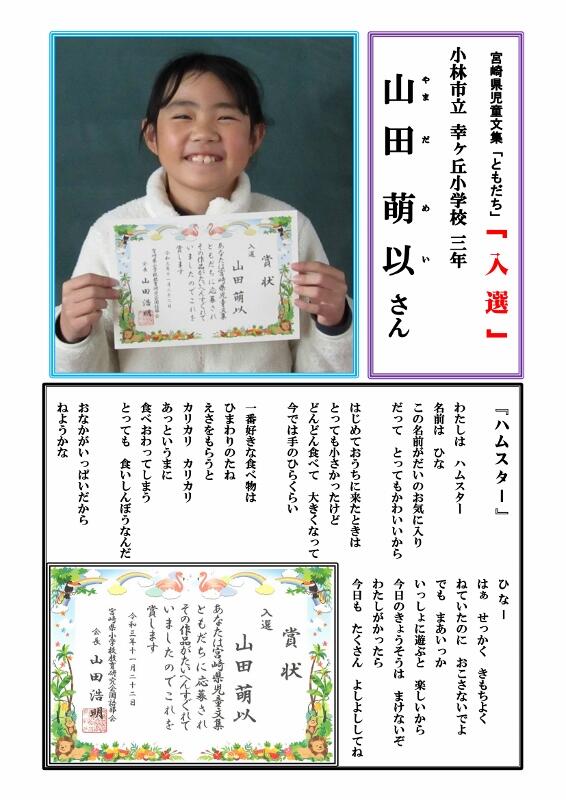 宮崎県児童文集「ともだち」『入選』
小林市立 幸ヶ丘小学校 三年
山田 萌以 さん
やま だ め い
賞状
入選
山田萌以
あなたは宮崎県児童文集
ともだちに応募され
その作品がたいへんすぐれて
いましたのでこれを
賞します
令和三年十一月二十二日
宮崎県小学校教育研究会国語部会
会長 山田浩明
『ハムスター』
わたしは ハムスター
名前は ひな
この名前がだいのお気に入り
だって とってもかわいいから
はじめておうちに来たときは
とっても小さかったけど
どんどん食べて 大きくなって
今では手のひらくらい
一番好きな食べ物は
ひまわりのたね
えさをもらうと
カリカリ カリカリ
あっというまに
食べおわってしまう
とっても 食いしんぼうなんだ
おなかがいっぱいだから
ねようかな
ひなー
はぁ せっかく きもちよく
ねていたのに おこさないでよ
でも まあいっか
いっしょに遊ぶと 楽しいから
今日のきょうそうは まけないぞ
わたしがかったら
今日も たくさん よしよししてね
賞状
入選
山田萌以
あなたは宮崎県児童文集
ともだちに応募され
その作品がたいへんすぐれて
いましたのでこれを
賞します
令和三年十一月二十二日
宮崎県小学校教育研究会国語部会
会長 山田浩明